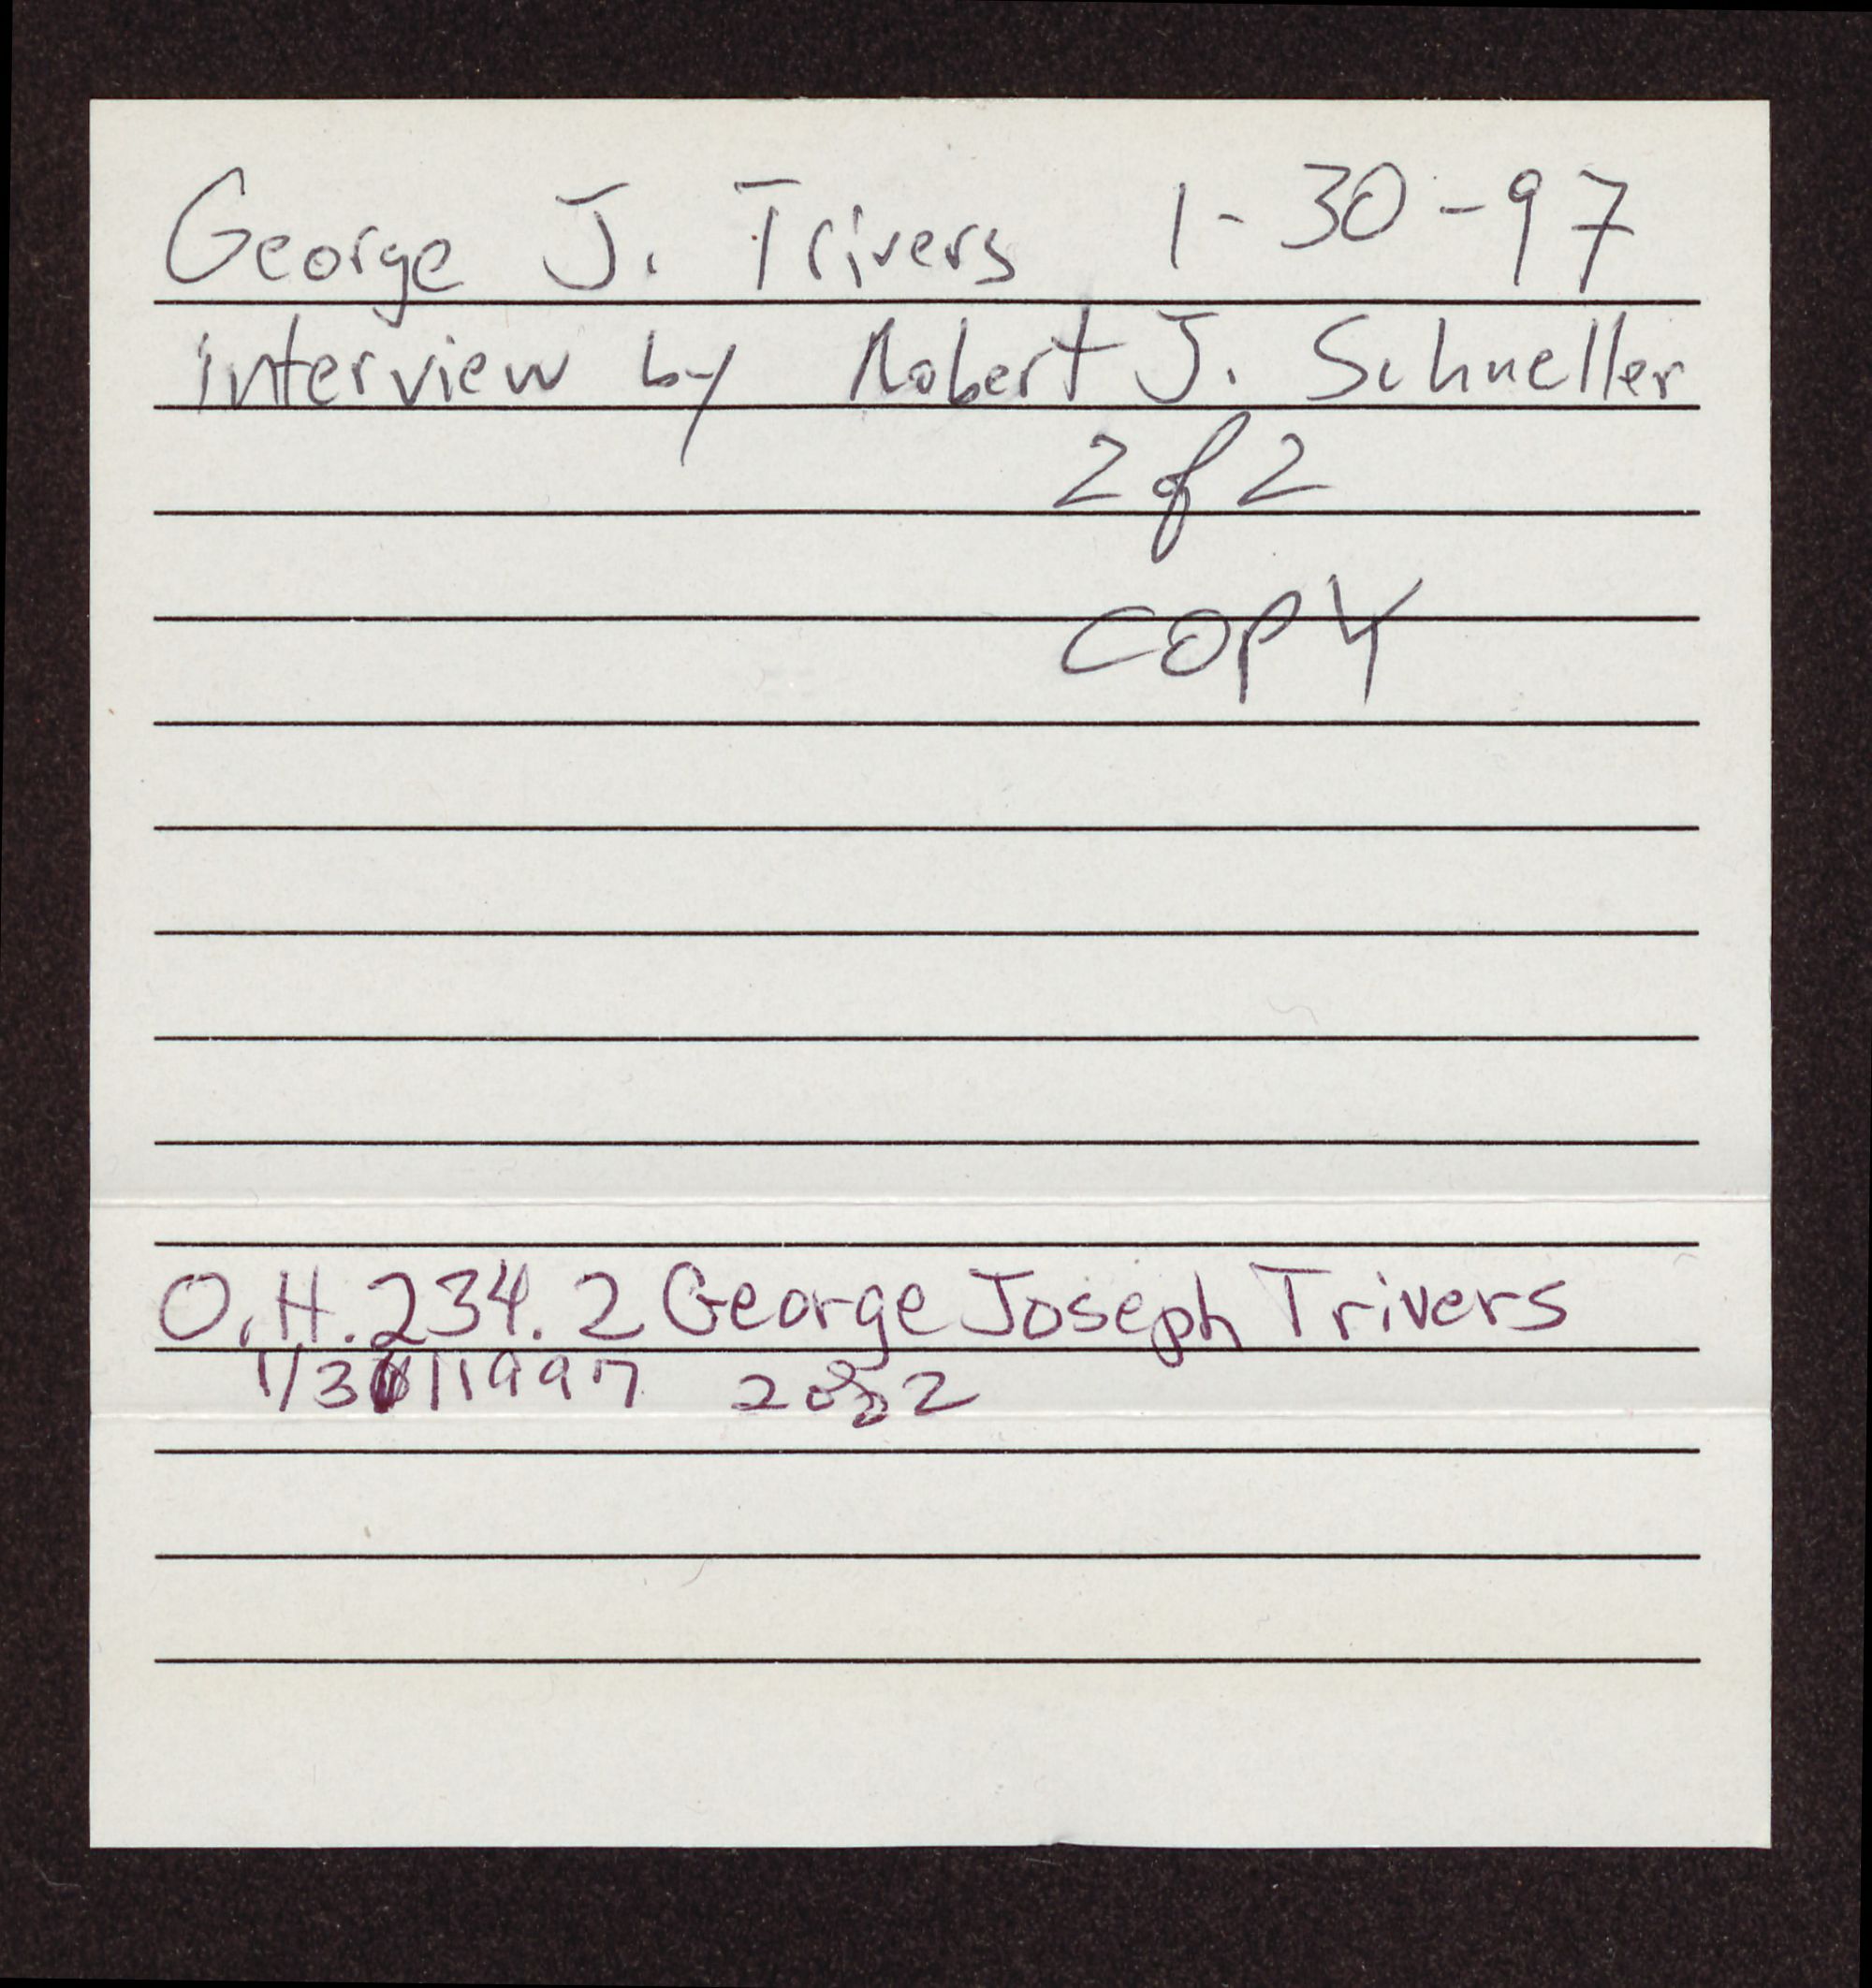 George J. Trivers 1-30-97
interview by Robert J. Schneller
2 of 2
COPY
O.H.234.2 George Joseph Trivers
1/30/1997 2 of 2